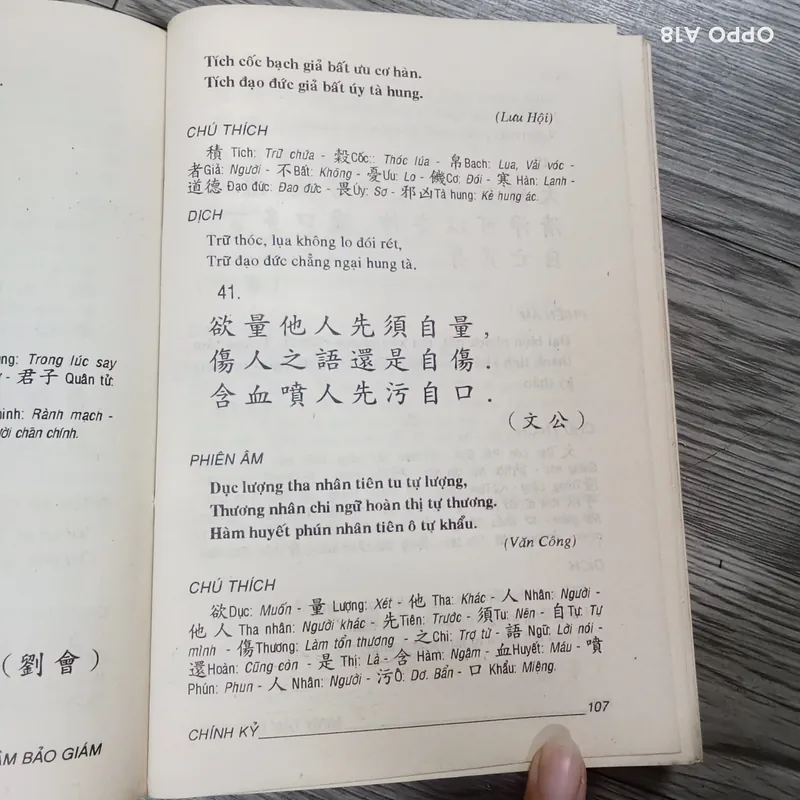 ung: Trong lúc say
君子 Quân tử:
minh: Rành mạch -
ười chân chính.
(劉會)
ÂM BẢO GIÁM
Tích cốc bạch giả bất ưu cơ hàn.
Tích đạo đức giả bất úy tà hung.
(Lưu Hội)
CHÚ THÍCH
積 Tích: Trữ chứa - 穀Cốc: Thóc lúa - 帛Bạch: Lụa, Vải vóc -
者Giả: Người - 不Bất: Không - 憂Ưu: Lo - 饑Cơ: Đói - 寒 Hàn: Lạnh -
道德 Đạo đức: Đạo đức - 畏Úy: Sợ - 邪凶Tà hung: Kẻ hung ác.
DỊCH
Trữ thóc, lụa không lo đói rét,
Trữ đạo đức chẳng ngại hung tà.
41.
欲量他人先須自量,
傷人之語還是自傷.
含血噴人先污自口.
(文公)
PHIÊN ÂM
Dục lượng tha nhân tiên tu tự lượng,
Thương nhân chi ngữ hoàn thị tự thương.
Hàm huyết phún nhân tiên ô tự khẩu.
(Văn Công)
CHÚ THÍCH
欲Dục: Muốn - 量 Lượng: Xét - 他 Tha: Khác - 人 Nhân: Người -
他人 Tha nhân: Người khác - 先Tiên: Trước - 須Tu: Nên - 自Tự: Tự
mình - 傷Thương: Làm tổn thương - 之Chi: Trợ từ - 語 Ngữ: Lời nói -
還Hoàn: Cũng còn - 是 Thị: Là - 含 Hàm: Ngậm - 血Huyết: Máu - 噴
Phún: Phun - 人 Nhân: Người - 污Ô: Dơ. Bẩn - 口 Khẩu: Miệng.
CHÍNH KỶ 107
OPPO A18